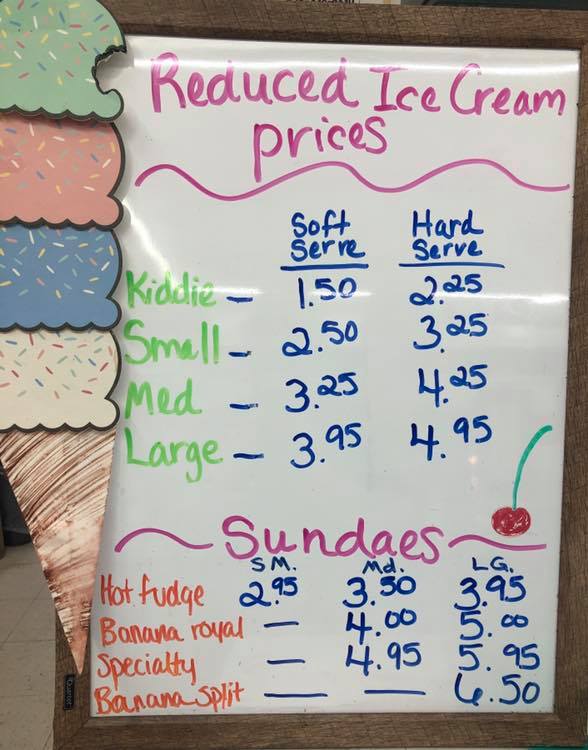 Reduced Ice Cream
prices
Soft Serve Hard Serve
Kiddie – 1.50 2.25
Small – 2.50 3.25
Med – 3.25 4.25
Large – 3.95 4.95
Sundaes
SM. Md. LG.
Hot fudge 2.95 3.50 3.95
Banana royal — 4.00 5.00
Specialty — 4.95 5.95
Banana Split — — 6.50
Quartet